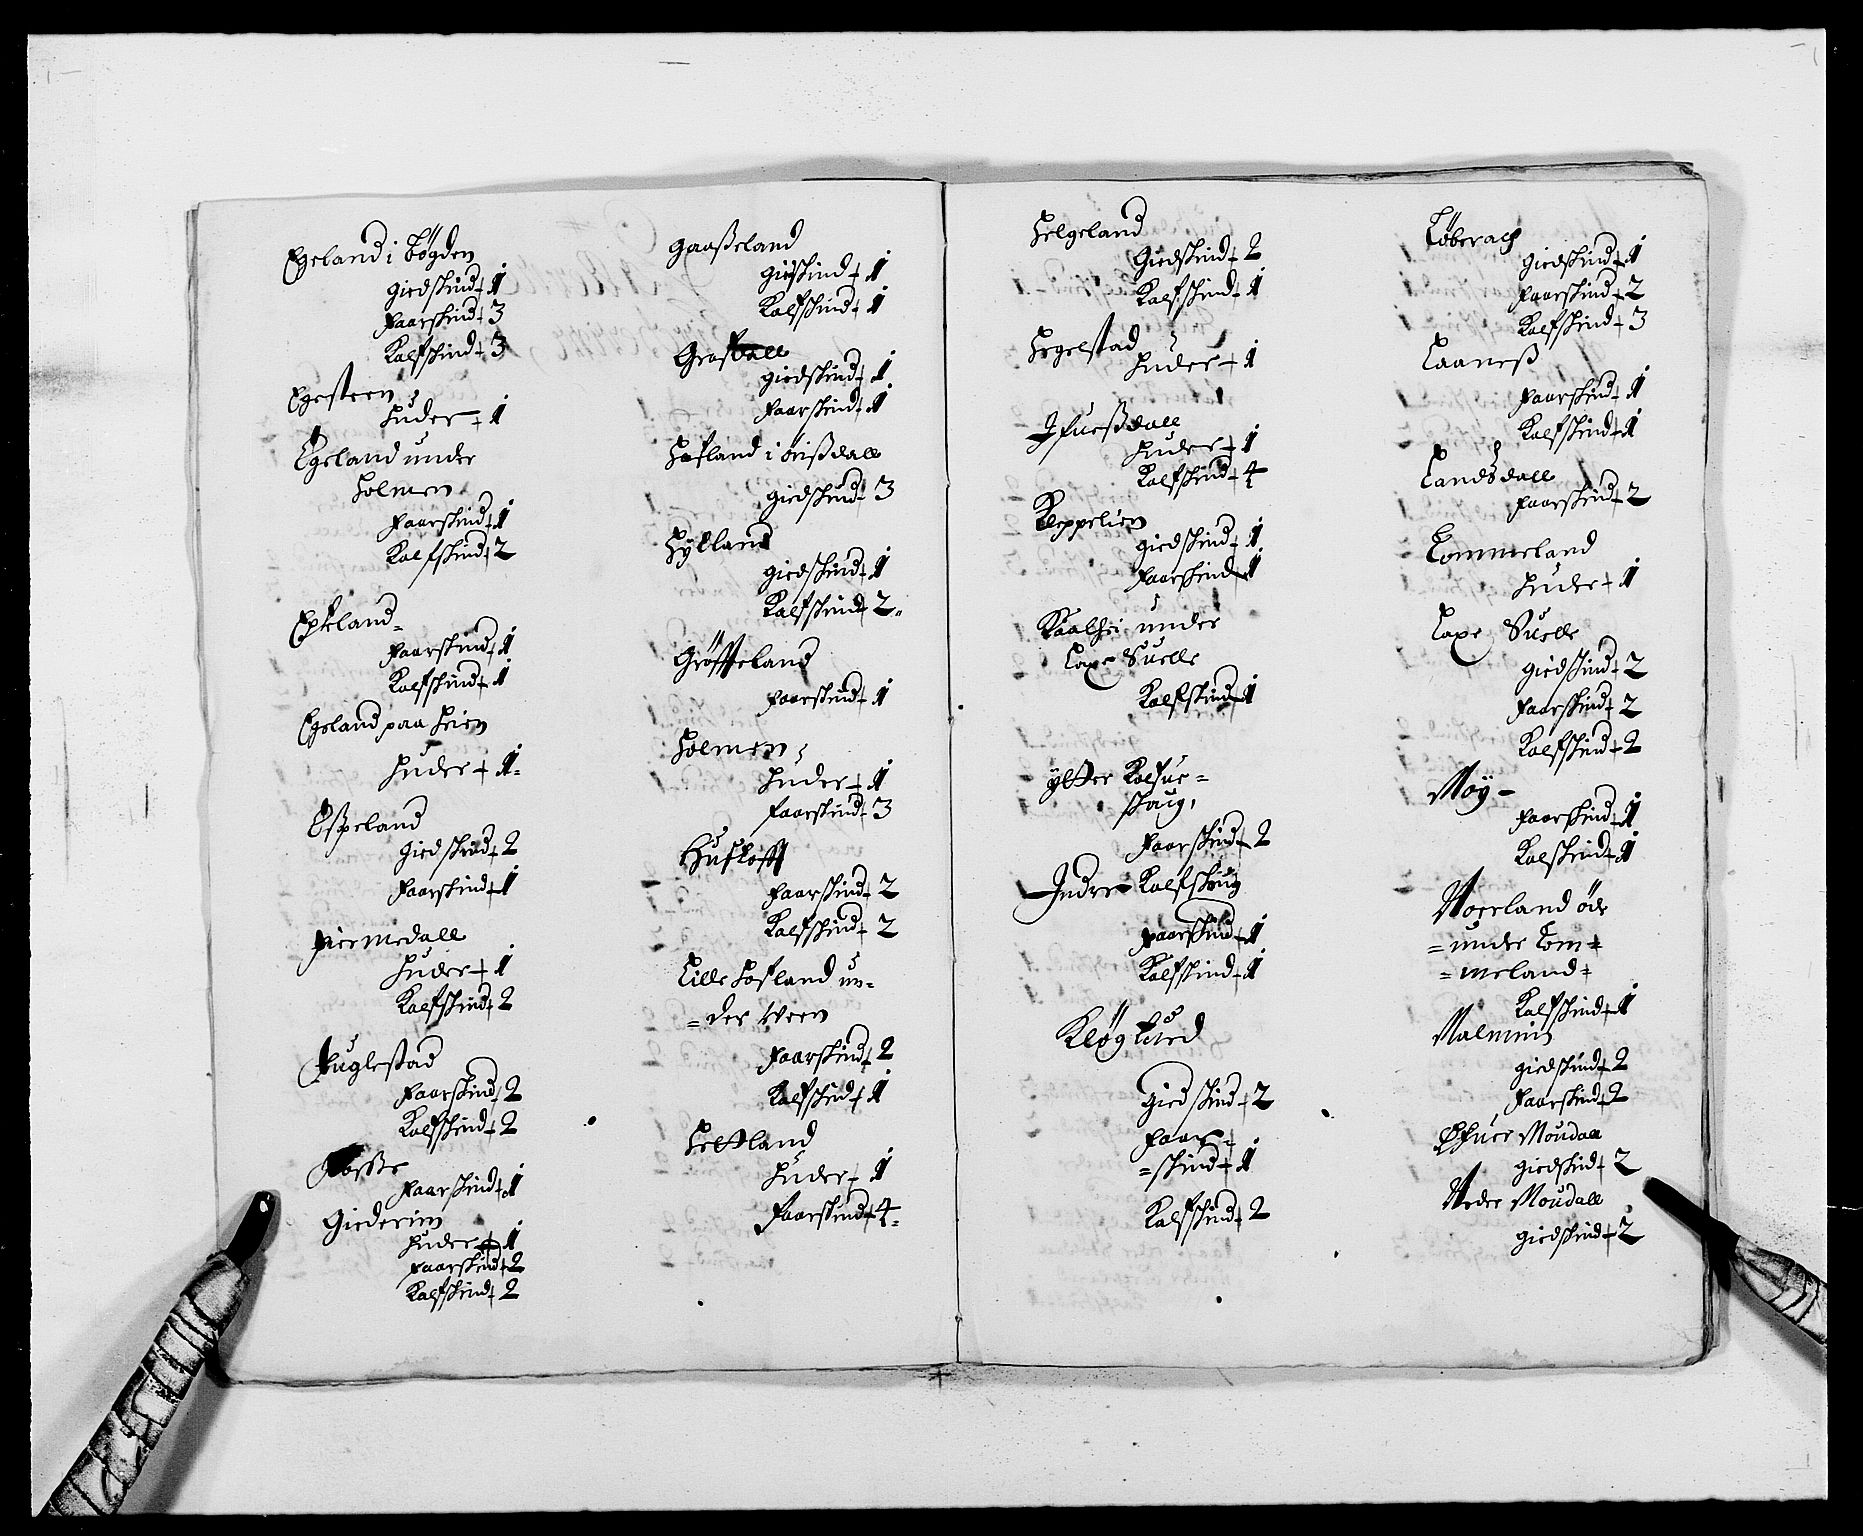 Egeland i bøgden
giedskind - 1
Faarskind - 3
Kalfskind - 3
Egesteen
Huder - 1
Egeland under
Holmen
Faarskind - 1
Kalfskind - 2
Epeland -
Faarskind - 1
Kalfskind - 1
Egeland paa Heien
Huder - 1 -
Espeland
giedskind - 2
Faarskind - 1
Fiermedall
Huder - 1
Kalfskind - 2
Fuglestad
Faarskind - 2
Kalfskind - 2
Fosse
Faarskind - 1
Giederim
Huder - 1
Faarskind - 2
Kalfskind - 2
Gaasseland
giedskind - 1
Kalfskind - 1
Grasdall
giedskind - 1
Faarskind - 1
Hofland i
giedskind - 3
Hÿland
giedskind - 1
Kalfskind - 2 -
Grøsseland
Faarskind - 1
Holmen
Huder - 1
Faarskind - 3
Faarskind - 2
Kalfskind - 2
Lille Hofland un=
=der Veen
Faarskind - 2
Kalfskind - 1
Hetland
Huder - 1
Faarskind - 4 -
Helgeland
Giedskind - 2
Kalfskind - 1
Hegelstad
Huder - 1
Ifuessdall
Huder - 1
Kalfskind - 4
Keppelien
giedskind - 1
Faarskind - 1
Kaalhei under
Laxe Suelle
Kalfskind - 1
ÿtter Kalfue=
skaug,
Faarskind - 2
Indre Kalfskaug
Faarskind - 1
Kalfskind - 1
Kløgtued
Giedskind - 2
Faar=
=skind - 1
Kalfskind - 2
giedskind - 1
Faarskind - 2
Kalfskind - 3
Laaness
Faarskind - 1
Kalfskind - 1
Landsdall
Faarskind - 2
Lommeland
Huder - 1
Laxe Suelle
giedskind - 2
Faarskind - 2
Kalfskind - 2
Moÿ -
Faarskind - 1
Kalfskind - 1
Moerland øde
=under Lom=
=meland=
Kalfskind - 1
Malmin
giedskind - 2
Faarskind - 2
Øfuere Moudall
giedskind - 2
Nedre Moudall
giedskind - 2